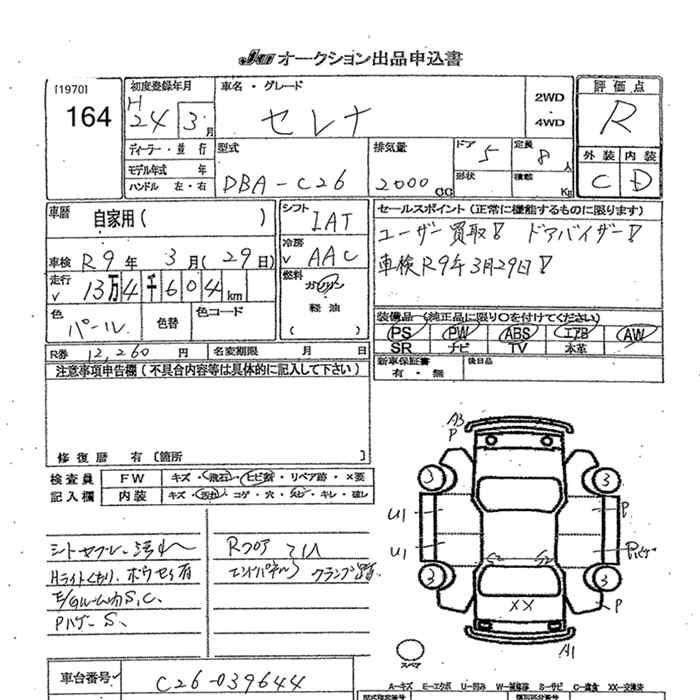 JU オークション出品申込書
[1970]
164
初度登録年月
H
24 3 月
車名・グレード
セレナ
2WD
・
4WD
評価点
R
ディーラー・並行
モデル年式 年
ハンドル 左・右
型式
DBA-C26
排気量
2000 CC
ドア
5
形状
定員
8 人
積載
Kg
外装 内装
C D
車歴
自家用( )
シフト
IAT
セールスポイント(正常に機能するものに限ります)
ユーザー買取! ドアバイザー!
車検R9年3月29日!
車検 R9年 3月(29日)
冷房
AAC
走行
13万4千604 km
燃料
ガソリン
軽油
( )
色
パール
色替
色コード
装備品(純正品に限り〇を付けてください)
PS PW ABS エアB AW
SR ナビ TV 本革
R券 12,260 円
名変期限 月 日
新車保証書
有・無
後日品
注意事項申告欄(不具合内容等は具体的に記入して下さい)
修復歴 有〔箇所 〕
検査員
記入欄
FW
キズ・飛石・ヒビ割・リペア跡・×要
内装
キズ・汚れ・コゲ・穴・スレ・キレ・破レ
Hライトくもり、ホウセイ有
Pハゲ S、
Rフロア
エンドパネル クランプ跡
A3
P
3 3
U1
P
U1
Pハゲ
S2 S2
3 3
XX
P
A1
スペア
車台番号
C26-039644
A=キズ E=エクボ U=凹み W=補修跡 S=サビ C=腐食 XX=交換済